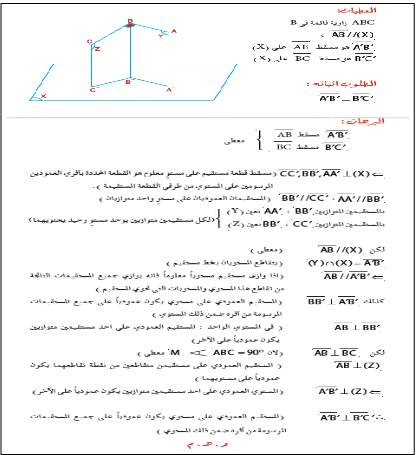 المعطيات:
ABC زاوية قائمة في B
، AB // (X)
A'B' هو مسقط AB على (X)
B'C' هو مسقط BC على (X)
المطلوب اثباته :
A'B' ⊥ B'C'
البرهان :
A'B' مسقط AB
B'C' مسقط BC } معطى
⇐ CC', BB', AA' ⊥ (X) (مسقط قطعة مستقيم على مستوٍ معلوم هو القطعة المحددة بأثري العمودين
المرسومين على المستوي من طرفي القطعة المستقيمة ) .
BB' // CC' ، AA' // BB' (المستقيمان العموديان على مستوٍ واحد متوازيان )
بالمستقيمين المتوازيين BB' ، AA' نعين (Y)
بالمستقيمين المتوازيين CC' ، BB' نعين (Z) } (لكل مستقيمين متوازيين يوجد مستوٍ وحيد يحتويهما)
لكن AB // (X) (معطى )
(Y)∩(X) = A'B' (يتقاطع المستويان بخط مستقيم )
⇐ AB // A'B' (اذا وازى مستقيم مستوياً معلوماً فانه يوازي جميع المستقيمات الناتجة
من تقاطع هذا المستوي والمستويات التي تحوي المستقيم )
كذلك BB' ⊥ A'B' (المستقيم العمودي على مستوي يكون عمودياً على جميع المستقيمات
المرسومة من أثره ضمن ذلك المستوي )
AB ⊥ BB' ( في المستوي الواحد : المستقيم العمودي على احد مستقيمين متوازيين
يكون عمودياً على الآخر)
لكن AB ⊥ BC (لان M ∢ ABC = 90° معطى )
AB ⊥ (Z) ( المستقيم العمودي على مستقيمين متقاطعين من نقطة تقاطعهما يكون
عمودياً على مستويهما )
⇐ A'B' ⊥ (Z) (المستوي العمودي على احد مستقيمين متوازيين يكون عمودياً على الآخر)
∴ A'B' ⊥ B'C' (المستقيم العمودي على مستوي يكون عمودياً على جميع المستقيمات
المرسومة من أثره ضمن ذلك المستوي )
و . هـ . م
B
A
Y
C
Z
C
B
A
X